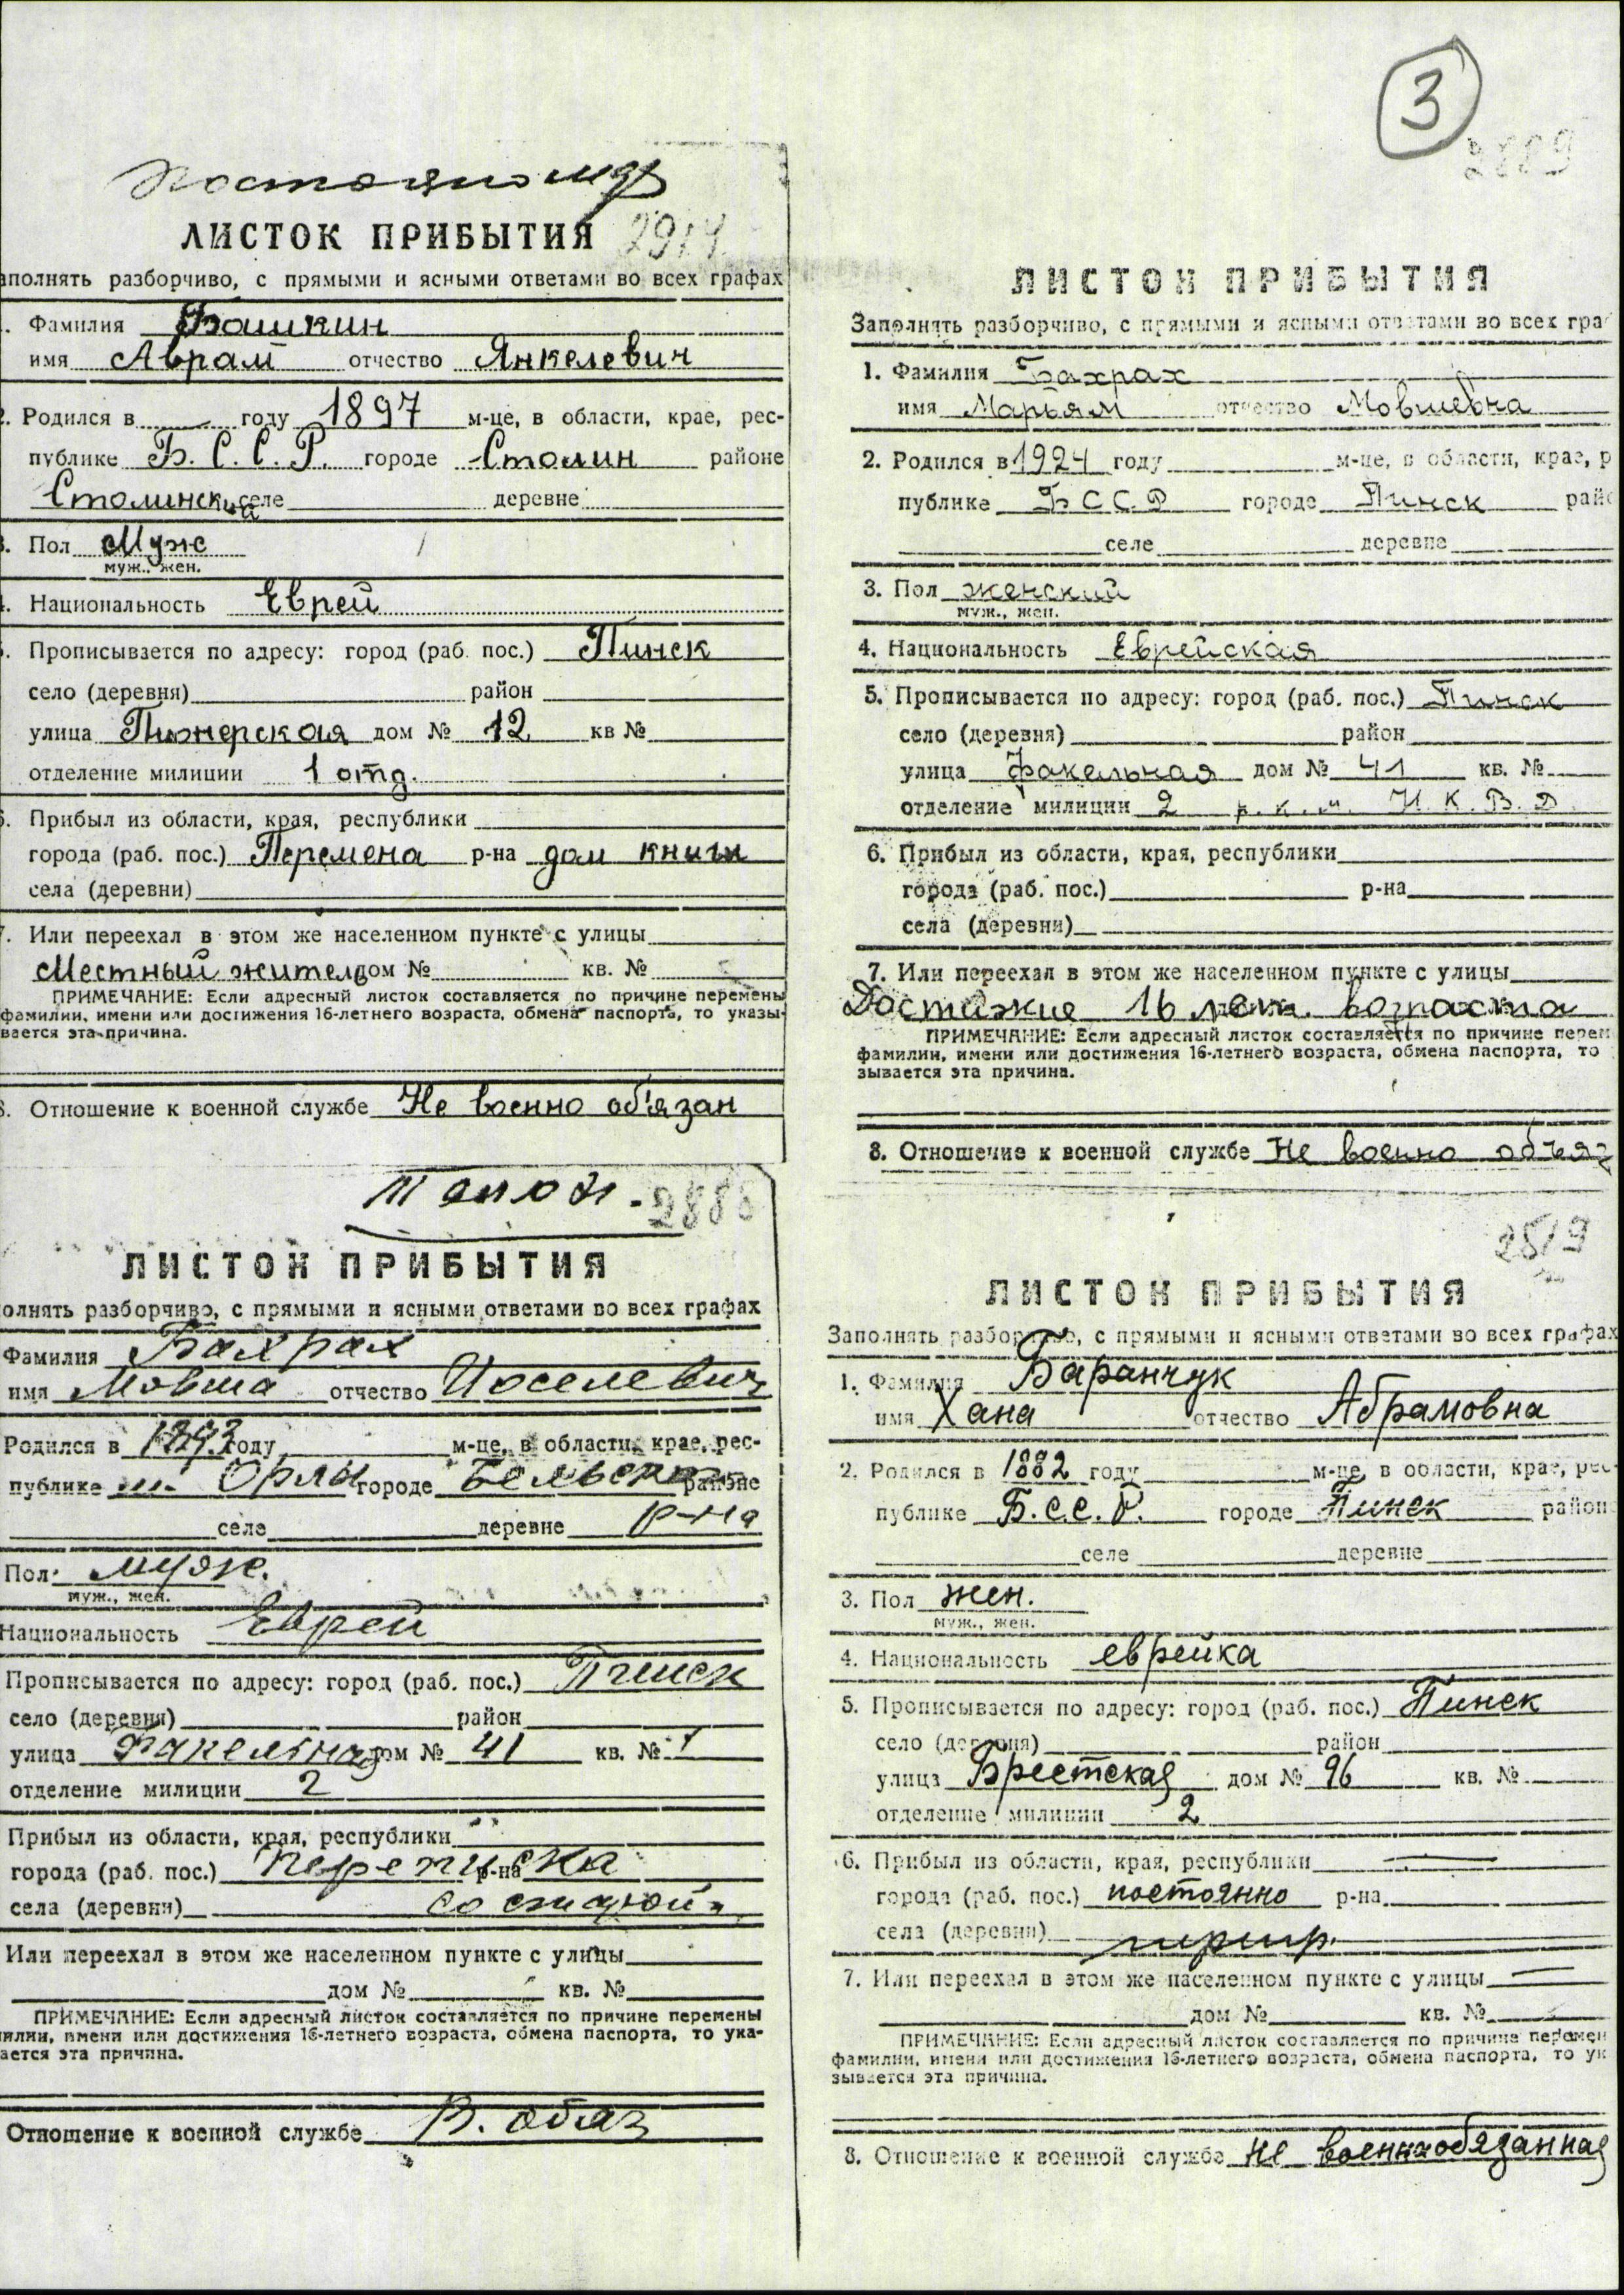 3
2889
2914
ЛИСТОК ПРИБЫТИЯ
аполнять разборчиво, с прямыми и ясными ответами во всех графах
. Фамилия Башкин
имя Аврам отчество Янкелевич
2. Родился в году 1897 м-це, в области, крае, рес-
публике Б.С.С.Р. городе Столин районе
Столинский селе деревне
3. Пол Муж
муж., жен.
4. Национальность Еврей
5. Прописывается по адресу: город (раб. пос.) Пинск
село (деревня) район
улица Пионерская дом № 12 кв №
отделение милиции 1 отд.
6. Прибыл из области, края, республики
города (раб. пос.) Перемена р-на дом книги
села (деревни)
7. Или переехал в этом же населенном пункте с улицы
Местный житель дом № кв. №
ПРИМЕЧАНИЕ: Если адресный листок составляется по причине перемены
фамилии, имени или достижения 16-летнего возраста, обмена паспорта, то указы-
вается эта причина.
8. Отношение к военной службе Не военно об'язан
ЛИСТОК ПРИБЫТИЯ
Заполнять разборчиво, с прямыми и ясными ответами во всех граф
1. Фамилия Бахрах
имя Марьям отчество Мовшевна
2. Родился в 1924 году м-це, в области, крае, р
публике БССР городе Пинск райо
селе деревне
3. Пол женский
муж., жен.
4. Национальность Еврейская
5. Прописывается по адресу: город (раб. пос.) Пинск
село (деревня) район
улица Факельная дом № 41 кв. №
отделение милиции 2 р.к.м. Н.К.В.Д.
6. Прибыл из области, края, республики
города (раб. пос.) р-на
села (деревни)
7. Или переехал в этом же населенном пункте с улицы
Достижие 16 летн. возраста
ПРИМЕЧАНИЕ: Если адресный листок составляется по причине перем
фамилии, имени или достижения 16-летнего возраста, обмена паспорта, то
зывается эта причина.
8. Отношение к военной службе Не военно объяз
ЛИСТОК ПРИБЫТИЯ
олнять разборчиво, с прямыми и ясными ответами во всех графах
Фамилия Бахрах
имя Мовша отчество Иоселевич
Родился в 1893 году м-це, в области, крае, рес-
публике м. Орлы городе Бельск районе
селе деревне р-на
Пол муж.
муж., жен.
Национальность Еврей
Прописывается по адресу: город (раб. пос.) Пинск
село (деревня) район
улица Факельная дом № 41 кв. № 1
отделение милиции 2
Прибыл из области, края, республики
города (раб. пос.) переписка р-на
села (деревни) со
Или переехал в этом же населенном пункте с улицы
дом № кв. №
ПРИМЕЧАНИЕ: Если адресный листок составляется по причине перемены
илии, имени или достижения 16-летнего возраста, обмена паспорта, то ука-
ается эта причина.
Отношение к военной службе В. обяз
2519
ЛИСТОК ПРИБЫТИЯ
Заполнять разборчиво, с прямыми и ясными ответами во всех графах
1. Фамилия Баранчук
имя Хана отчество Абрамовна
2. Родился в 1882 году м-це, в области, крае, рес-
публике Б.С.С.Р. городе Пинск район
селе деревне
3. Пол жен.
муж., жен.
4. Национальность еврейка
5. Прописывается по адресу: город (раб. пос.) Пинск
село (деревня) район
улица Брестская дом № 96 кв. №
отделение милиции 2
6. Прибыл из области, края, республики
города (раб. пос.) постоянно р-на
села (деревни)
7. Или переехал в этом же населенном пункте с улицы
дом № кв. №
ПРИМЕЧАНИЕ: Если адресный листок составляется по причине перемен
фамилии, имени или достижения 16-летнего возраста, обмена паспорта, то ук
зывается эта причина.
8. Отношение к военной службе не военнообязанная